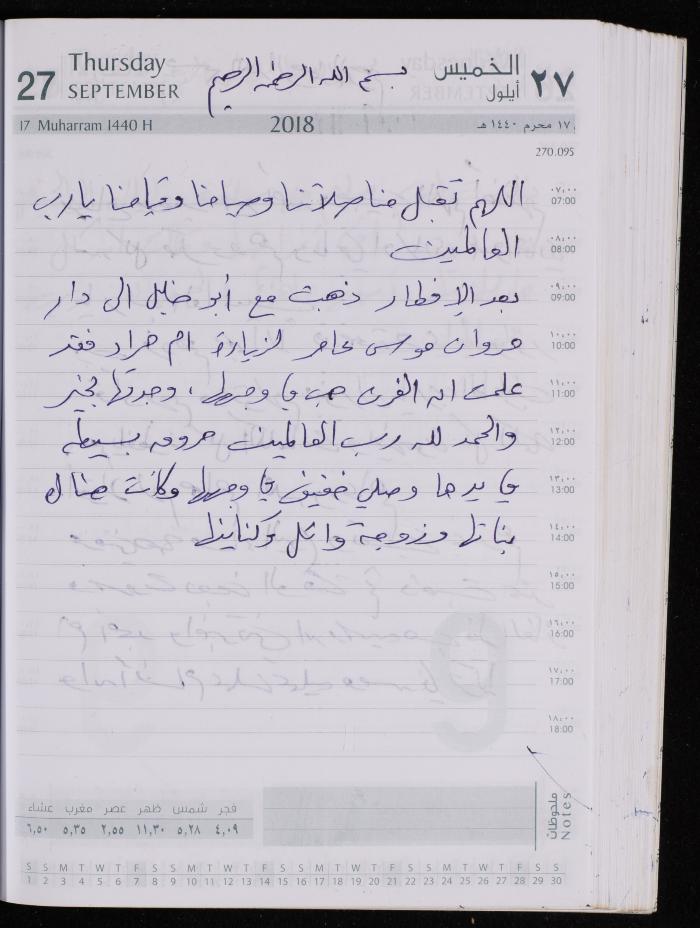 Thursday
27 SEPTEMBER
بسم الله الرحمن الرحيم
الخميس ٢٧
أيلول
17 Muharram 1440 H
2018
١٧ محرم ١٤٤٠ هـ
270.095
اللهم تقبل منا صلاتنا وصيامنا وقيامنا يا رب
٠٧,٠٠
07:00
العالمين
٠٨,٠٠
08:00
بعد الإفطار ذهبت مع أبو خليل الى دار
٠٩,٠٠
09:00
مروان موسى عامر لزيارة ام مراد فقد
١٠,٠٠
10:00
علمت ان الفرن هب في وجهها ، وجدتها بخير
١١,٠٠
11:00
والحمد لله رب العالمين حروق بسيطة
١٢,٠٠
12:00
في يدها وصلي خفيف في وجهها وكانت هناك
١٣,٠٠
13:00
بناتها وزوجة وائل وكناينها
١٤,٠٠
14:00
١٥,٠٠
15:00
١٦,٠٠
16:00
١٧,٠٠
17:00
١٨,٠٠
18:00
ملحوظات
Notes
فجر شمس ظهر عصر مغرب عشاء
٤,٠٩ ٥,٢٨ ١١,٣٠ ٢,٥٥ ٥,٣٥ ٦,٥٠
S S M T W T F S S M T W T F S S M T W T F S S M T W T F S S
1 2 3 4 5 6 7 8 9 10 11 12 13 14 15 16 17 18 19 20 21 22 23 24 25 26 27 28 29 30